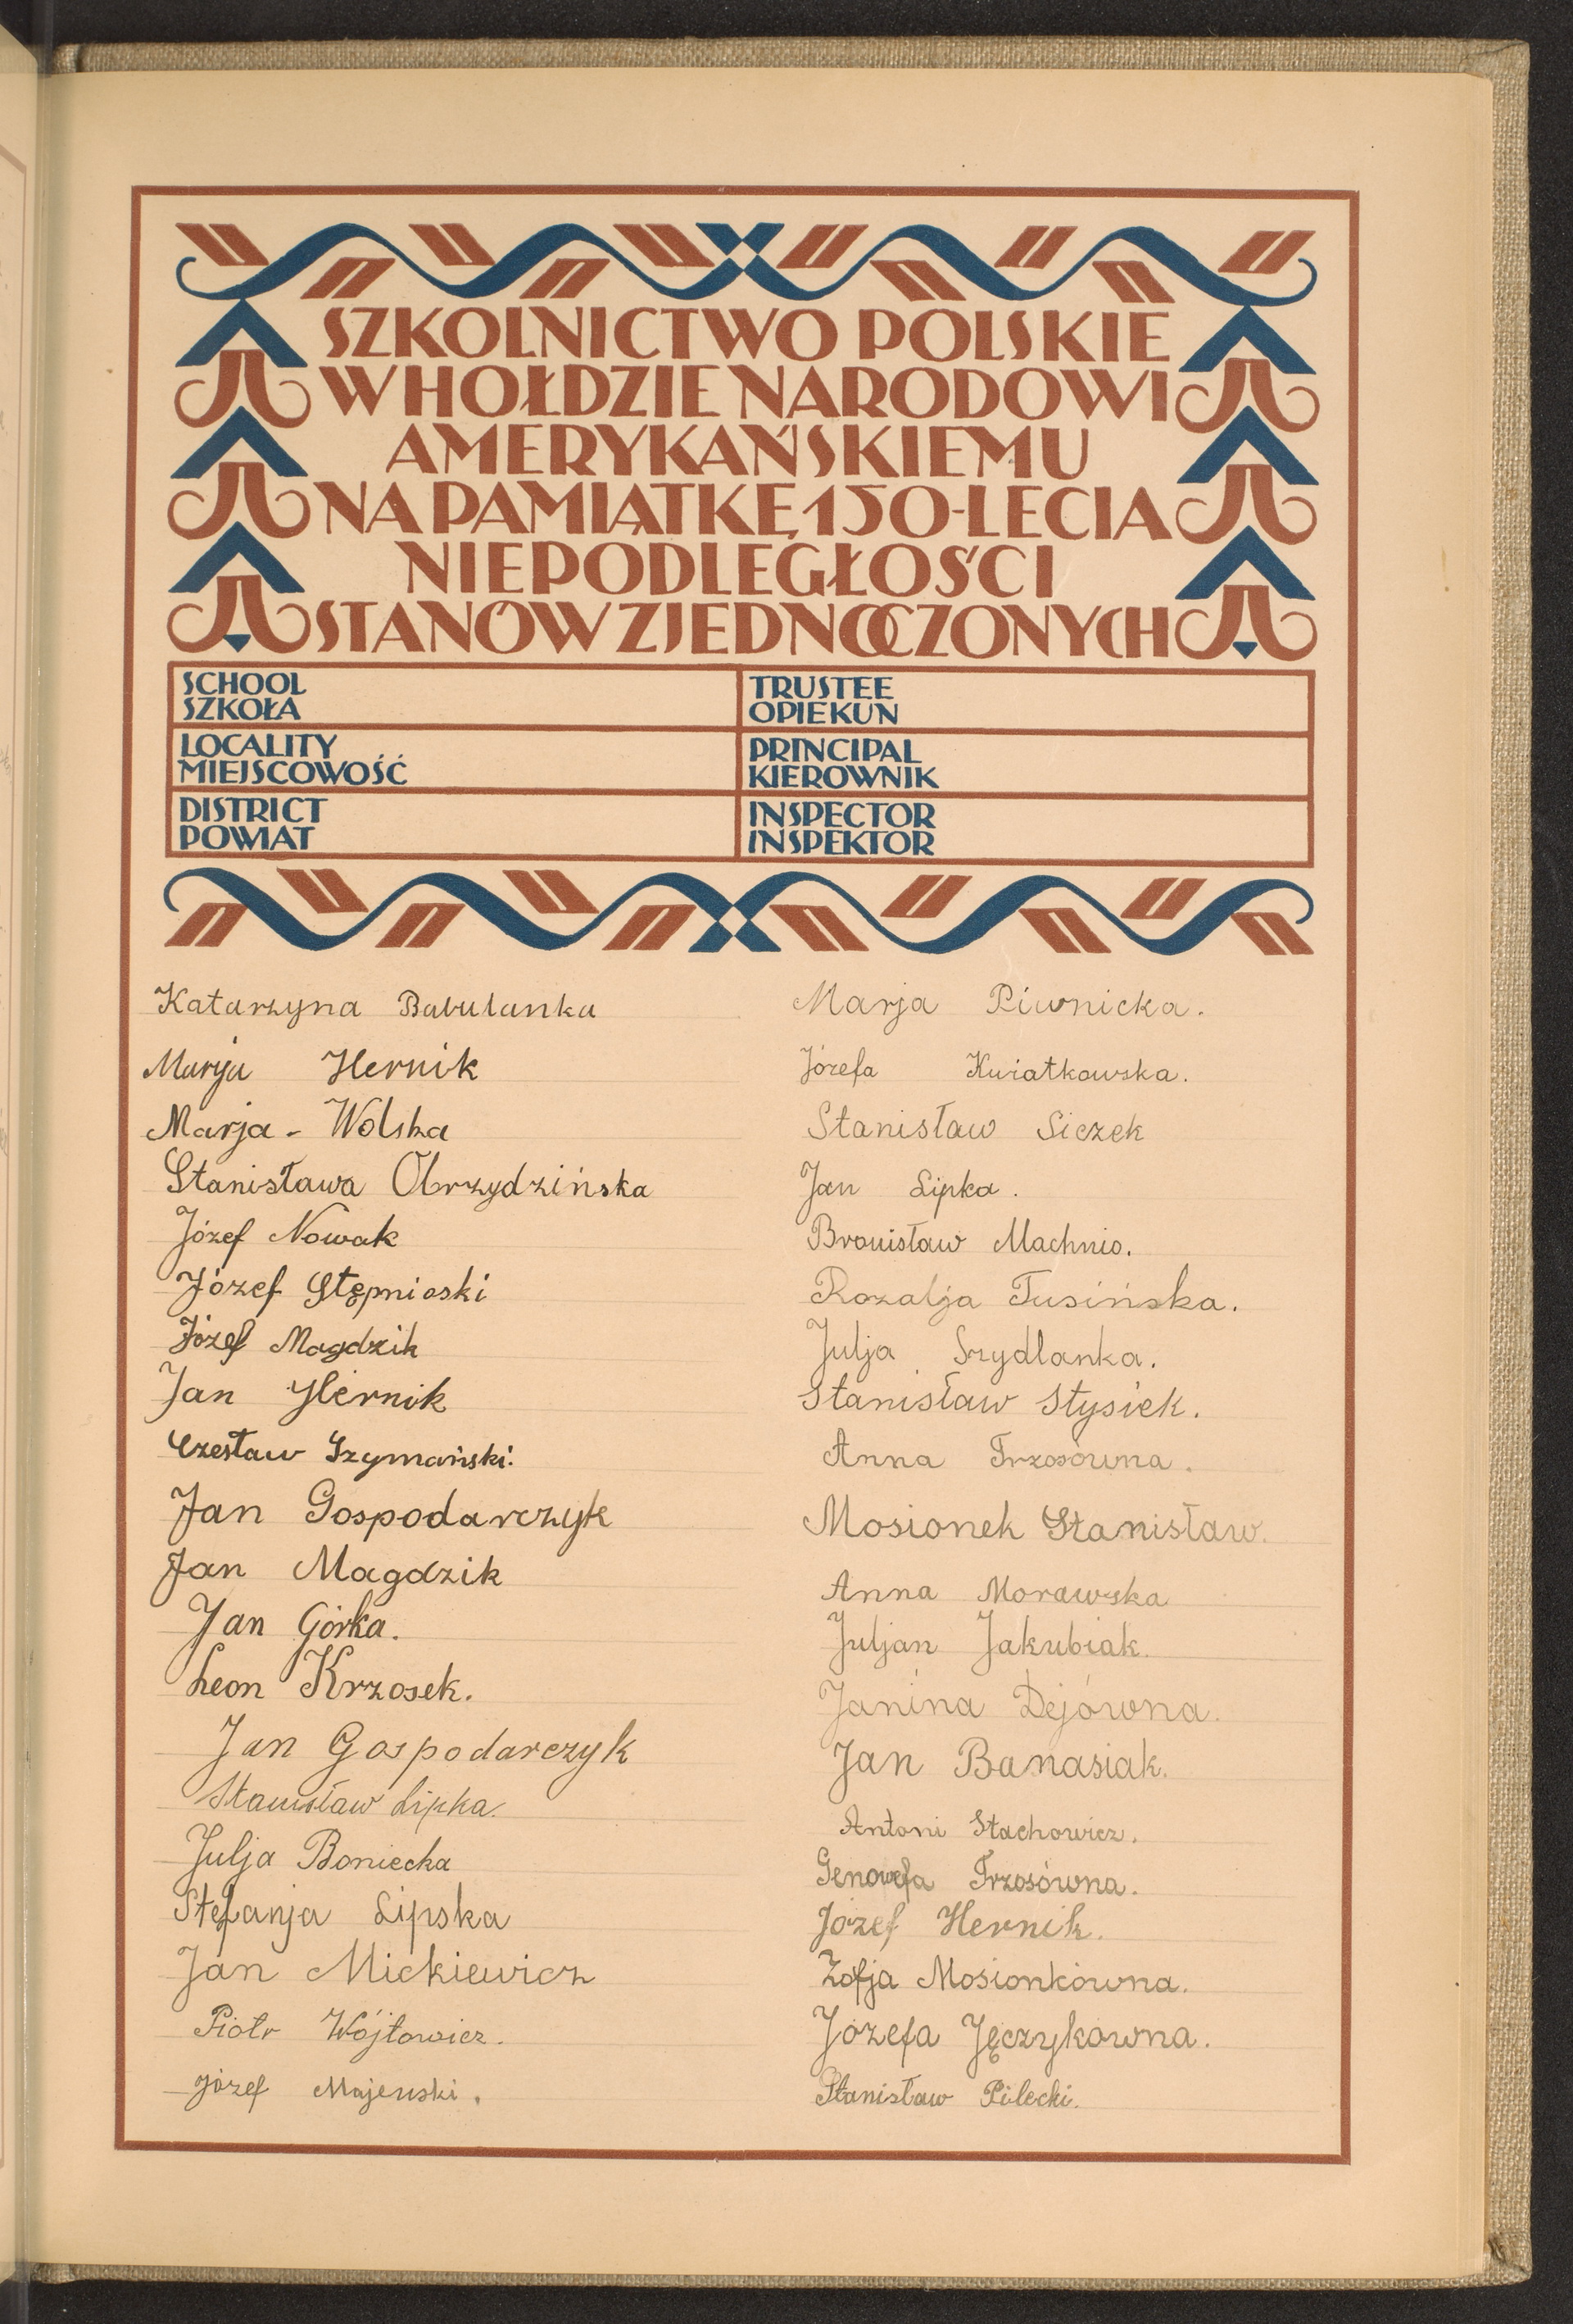 SZKOLNICTWO POLSKIE
W HOŁDZIE NARODOWI
AMERYKAŃSKIEMU
NA PAMIĄTKĘ 150-LECIA
NIEPODLEGŁOŚCI
STANÓW ZJEDNOCZONYCH
SCHOOL
SZKOŁA
TRUSTEE
OPIEKUN
LOCALITY
MIEJSCOWOŚĆ
PRINCIPAL
KIEROWNIK
DISTRICT
POWIAT
INSPECTOR
INSPEKTOR
Katarzyna Babulanka
Marja Hernik
Marja - Wolska
Stanisława Obrzydzińska
Józef Nowak
Józef Stępnioski
Józef Magdzik
Jan Hernik
Czesław Szymański.
Jan Gospodarczyk
Jan Magdzik
Jan Górka.
Leon Krzosek.
Jan Gospodarczyk
Stanisław Lipka.
Julja Boniecka
Stefanja Lipska
Jan Mickiewicz
Piotr Wójtowicz.
Józef Majewski.
Marja Piwnicka.
Józefa Kwiatkowska.
Stanisław Siczek
Jan Lipka.
Bronisław Machnio.
Rozalja Tusińska.
Julja Szydlanka.
Stanisław Stysiek.
Anna Trzosówna.
Mosionek Stanisław.
Anna Morawska
Juljan Jakubiak.
Janina Dejówna.
Jan Banasiak.
Antoni Stachowicz.
Genowefa Trzosówna.
Józef Hernik.
Zofja Mosionkówna.
Józefa Jęczykówna.
Stanisław Pilecki.